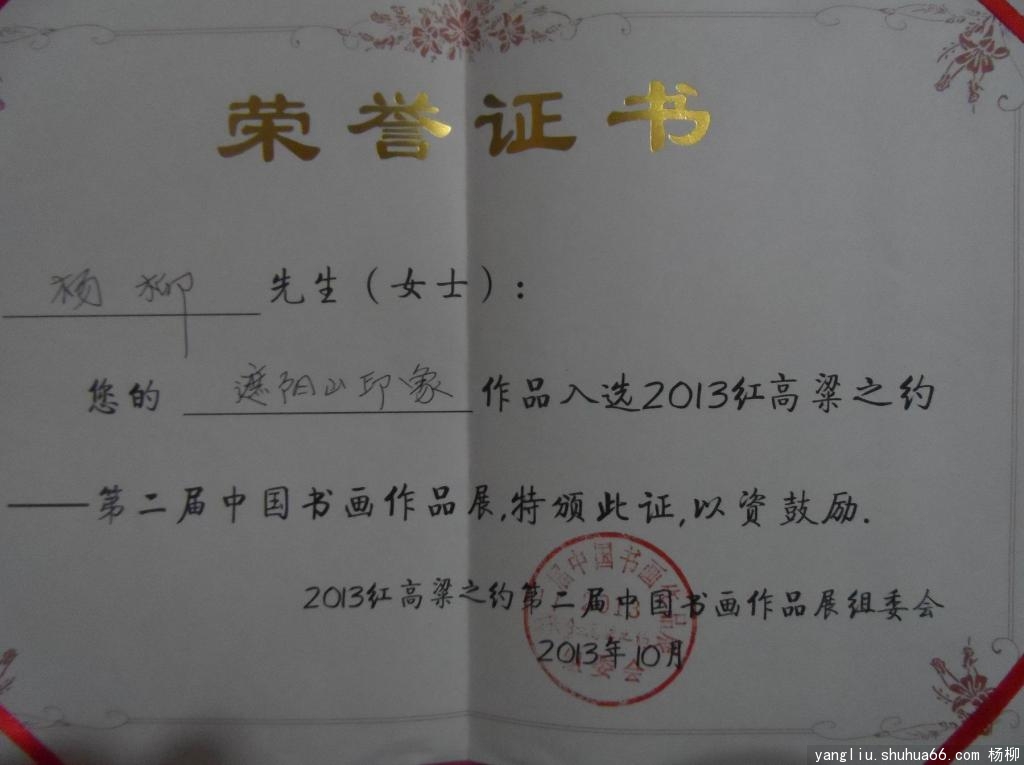 荣誉证书
杨柳 先生（女士）：
您的 遮阳山印象 作品入选2013红高粱之约
——第二届中国书画作品展,特颁此证,以资鼓励.
2013红高粱之约第二届中国书画作品展组委会
2013年10月
届中国书画作品
2013
委会
yangliu.shuhua66.com 杨柳